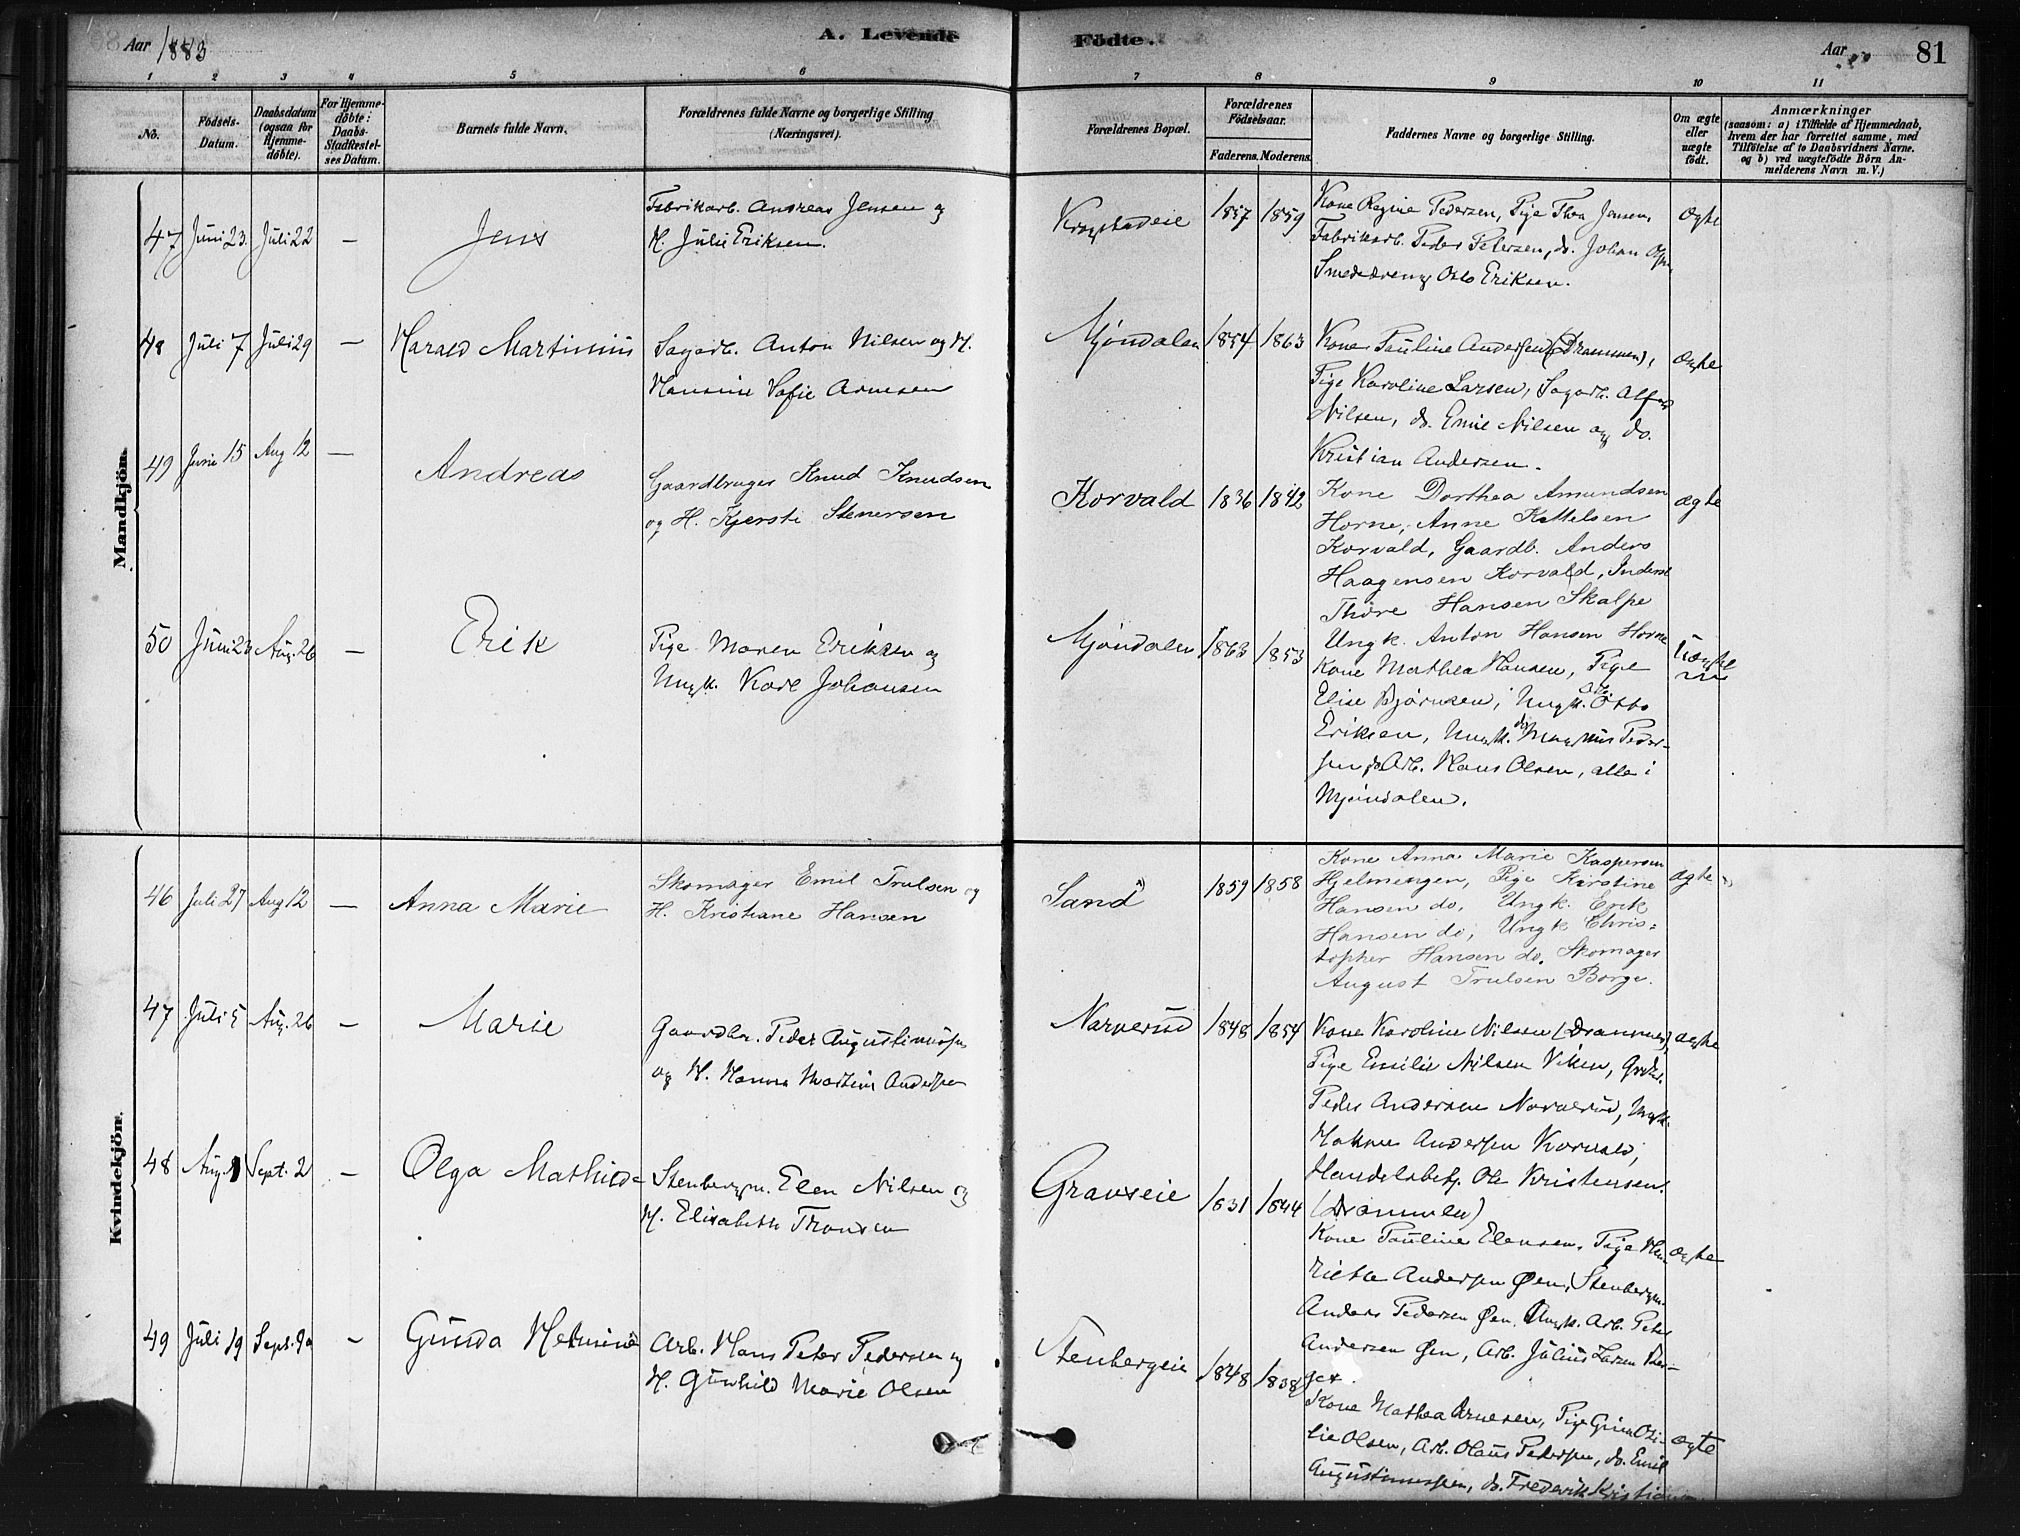 Aar 1883
A. Levende Födte.
Aar
81
1 2 3 4 5 6 7 8 9 10 11
No.
Födsels-Datum.
Daabsdatum (ogsaa for Hjemme-döbte).
For Hjemme-döbte: Daabs-Stadfæstel-ses Datum.
Barnets fulde Navn.
Forældrenes fulde Navne og borgerlige Stilling (Næringsvei).
Forældrenes Bopæl.
Forældrenes Födselsaar.
Faderens. Moderens.
Faddernes Navne og borgerlige Stilling.
Om ægte eller uægte födt.
Anmærkninger
(saasom: a) i Tilfælde af Hjemmedaab,
hvem der har forrettet samme, med
Tilföielse af to Daabsvidners Navne.
og b) ved uægtefödte Börn An-
melderens Navn m. V.)
Mandkjön.
47 Juni 23. Juli 22 — Jens
Fabrikarb. Andreas Jensen og
H. Julie Eriksen.
Krogstadeie 1857 1859
Kone Regine Pedersen, Pige Thea Jensen,
Fabrikarb. Peder Petersen, do. Johan
Smededreng Otto Eriksen.
ægte
48 Juli 7 Juli 29 — Harald Martinius
Sagarb. Anton Nilsen og H.
Hansine Sofie Arnesen
Mjøndalen 1854 1863
Kone Pauline Andersen (Drammen),
Pige Karoline Larsen, Sagarb. Alfred
Nilsen, do. Emil Nilsen og do.
Kristian Andersen.
ægte
49 Juni 15 Aug 12 — Andreas
Gaardbruger Knud Knudsen
og H. Kjersti Stenersen
Korvald 1836 1842
Kone Dorthea Amundsen
Horne, Anne Kittelsen
Korvald, Gaardb. Anders
Haagensen Korvald, Inderst
Thore Hansen Skalpe
ægte
50 Juni 23 Aug. 26 — Erik
Pige Maren Eriksen og
Ungk. Karl Johansen
Mjøndalen 1863 1853
Ungk. Anton Hansen Horne
Kone Mathea Hansen, Pige
Elise Bjørnsen, Ungk. Otto
Eriksen, Ungk. Magnus Peder-
sen, Arb. Hans Olsen, alle i
Mjøndalen.
Uægte
Kvindekjön.
46 Juli 27 Aug 12 — Anna Marie
Skomager Emil Trulsen og
H. Kristiane Hansen
Sand 1859 1858
Kone Anna Marie Kaspersen
Hjelmengen, Pige Kirstine
Hansen do, Ungk. Erik
Hansen do, Ungk Chris-
topher Hansen do. Skomager
August Trulsen Borge.
ægte
47 Juli 5 Aug. 26 — Marie
Gaardbr. Peder Augustinusen
og H. Hanna Martine Andersen
Narverud 1848 1854
Kone Karoline Nilsen (Drammen),
Pige Emilie Nilsen Viken, Grdbr.
Peder Andersen Narverud, Ungk.
Andersen Korvald,
Handelsbetj. Ole Kristensen
(Drammen)
ægte
48 Aug. 1 Sept. 2 — Olga Mathilde
Stenbergm. Elen Nilsen og
H. Elisabeth Tronsen
Gravseie 1831 1844
Kone Pauline Elensen, Pige Hen-
riette Andersen Øen, Stenbergm.
Anders Pedersen Øen, Ungk. Arb. Peter
Andersen Øen, Arb. Julius Larsen
ægte
49 Juli 19 Sept. 9 — Gunda Helmine
Arb. Hans Peter Pedersen og
H. Gunhild Marie Olsen
Stenbergeie 1848 1838
Kone Mathea Arnesen, Pige
Olsen, Arb. Olaus Pedersen, do. Emil
Augustinussen, do. Frederik Kristian
ægte